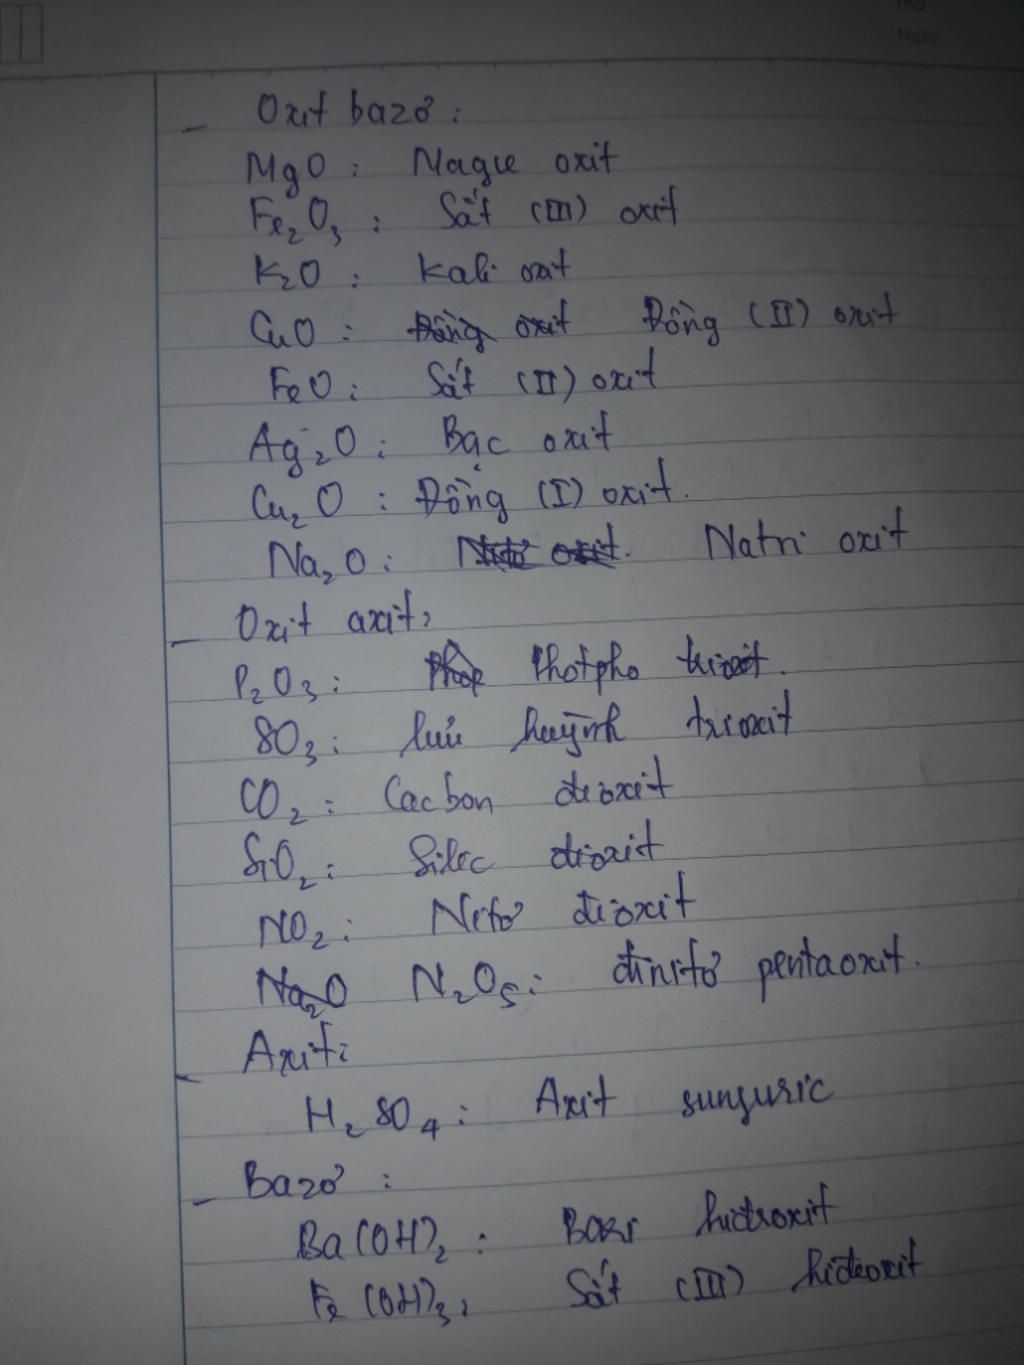 Thứ
Ngày
- Oxit bazơ :
MgO : Magie oxit
Fe₂O₃ : Sắt (III) oxit
K₂O : Kali oxit
CuO : Đồng oxit Đồng (II) oxit
FeO : Sắt (II) oxit
Ag₂O : Bạc oxit
Cu₂O : Đồng (I) oxit.
Na₂O : Nitơ oxit. Natri oxit
- Oxit axit:
P₂O₃ : Photpho trioxit.
SO₃ : lưu huỳnh trioxit
CO₂ : Cacbon đioxit
SiO₂ : Silic đioxit
NO₂ : Nitơ đioxit
Na₂O N₂O₅ : đinitơ pentaoxit.
- Axit:
H₂SO₄ : Axit sunfuric
- Bazơ :
Ba(OH)₂ : Bari hiđroxit
Fe(OH)₃ : Sắt (III) hiđroxit